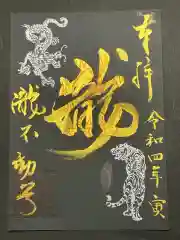 奉拝
令和四年寅
龍
瀧不動尊